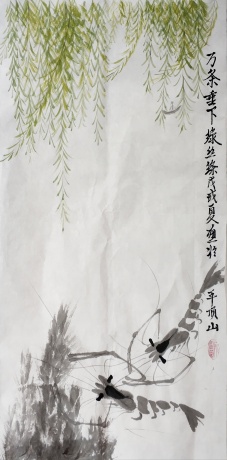 万条垂下绿丝绦戊戌夏画于
平顶山